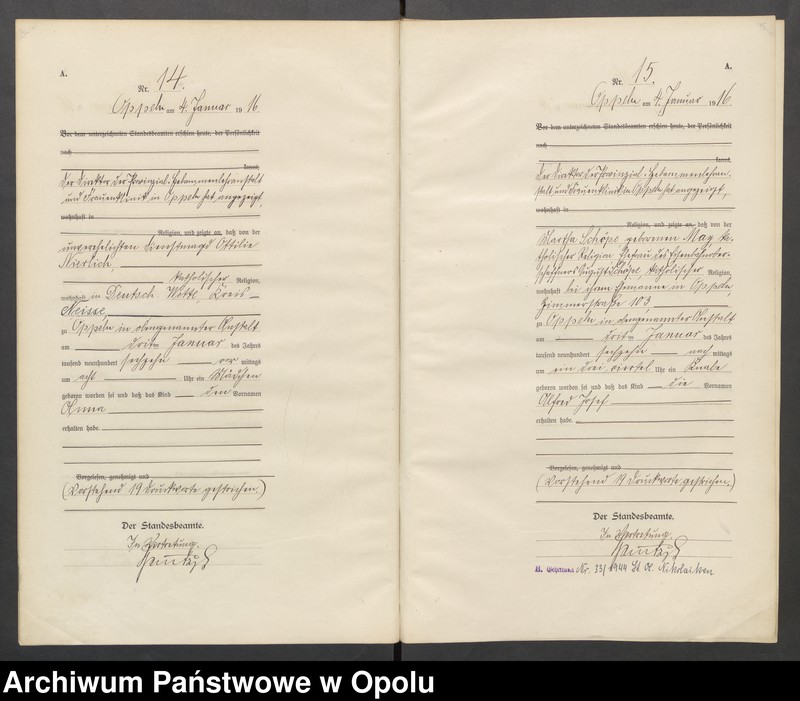 A.
Nr. 14.
Oppeln am 4. Januar 1916.
Vor dem unterzeichneten Standesbeamten erschien heute, der Persönlichkeit
nach
kannt,
Der Direktor der Provinzial-Hebammenlehranstalt
und Frauenklinik in Oppeln hat angezeigt,
wohnhaft in
Religion, und zeigte an, daß von der
unverehelichten Dienstmagd Ottilie
Nierlich,
katholischer Religion,
wohnhaft in Deutsch Wette, Kreis
Neisse,
zu Oppeln in obengenannter Anstalt
am dritten Januar des Jahres
tausend neunhundert sechzehn vor mittags
um acht Uhr ein Mädchen
geboren worden sei und daß das Kind den Vornamen
Anna
erhalten habe.
Vorgelesen, genehmigt und
(Vorstehend 19 Druckworte gestrichen.)
Der Standesbeamte.
In Vertretung.
A.
Nr. 15.
Oppeln am 4. Januar 1916.
Vor dem unterzeichneten Standesbeamten erschien heute, der Persönlichkeit
nach
kannt,
Der Direktor der Provinzial-Hebammenlehran-
stalt und Frauenklinik in Oppeln hat angezeigt,
wohnhaft in
Religion, und zeigte an, daß von der
Martha Schöpe geborenen May, ka-
tholischer Religion Ehefrau des
August Schöpe, katholischer Religion,
wohnhaft bei ihrem Ehemanne in Oppeln,
Zimmerstraße 103,
zu Oppeln in obengenannter Anstalt
am dritten Januar des Jahres
tausend neunhundert sechzehn nach mittags
um ein drei viertel Uhr ein Knabe
geboren worden sei und daß das Kind die Vornamen
Alfred Josef
erhalten habe.
Vorgelesen, genehmigt und
(Vorstehend 19 Druckworte gestrichen.)
Der Standesbeamte.
In Vertretung.
Nr. 33/1944 St. A.
Archiwum Państwowe w Opolu